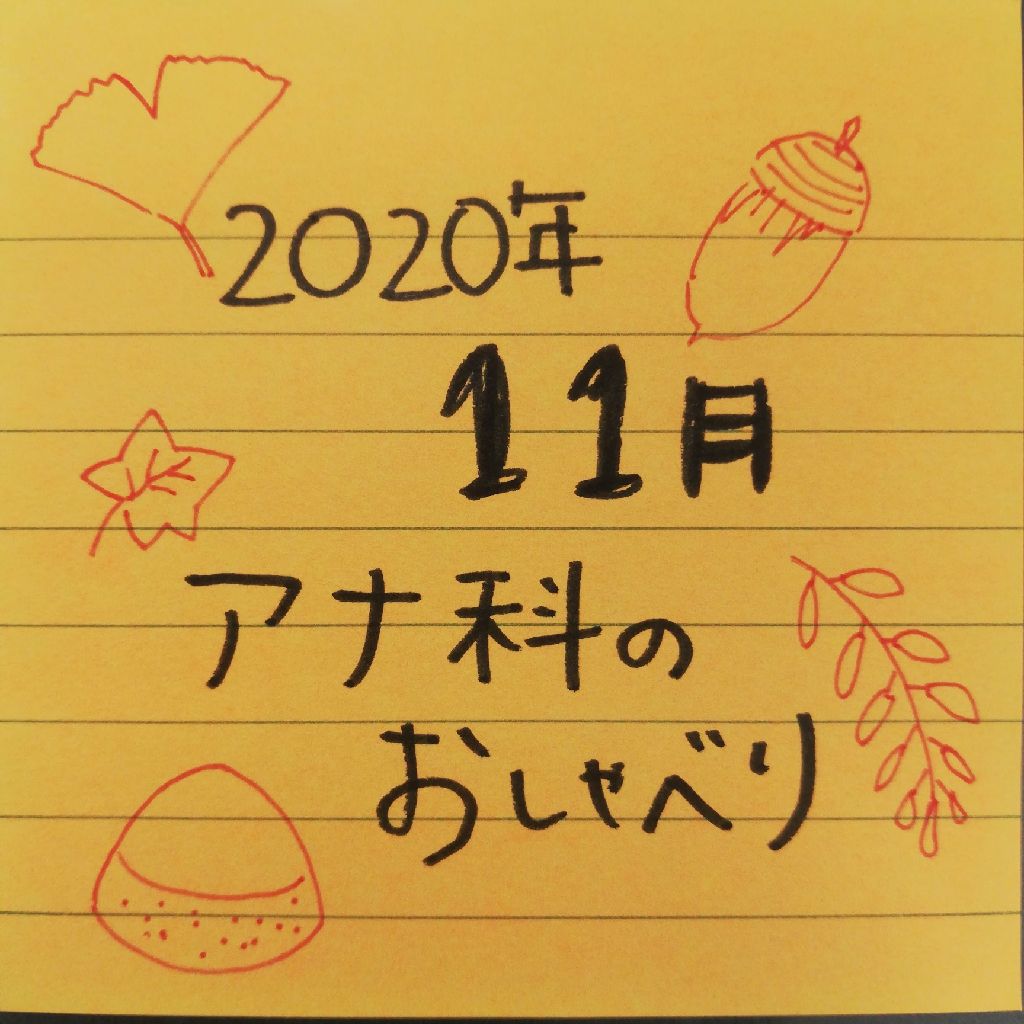 2020年
11月
アナ科の
おしゃべり